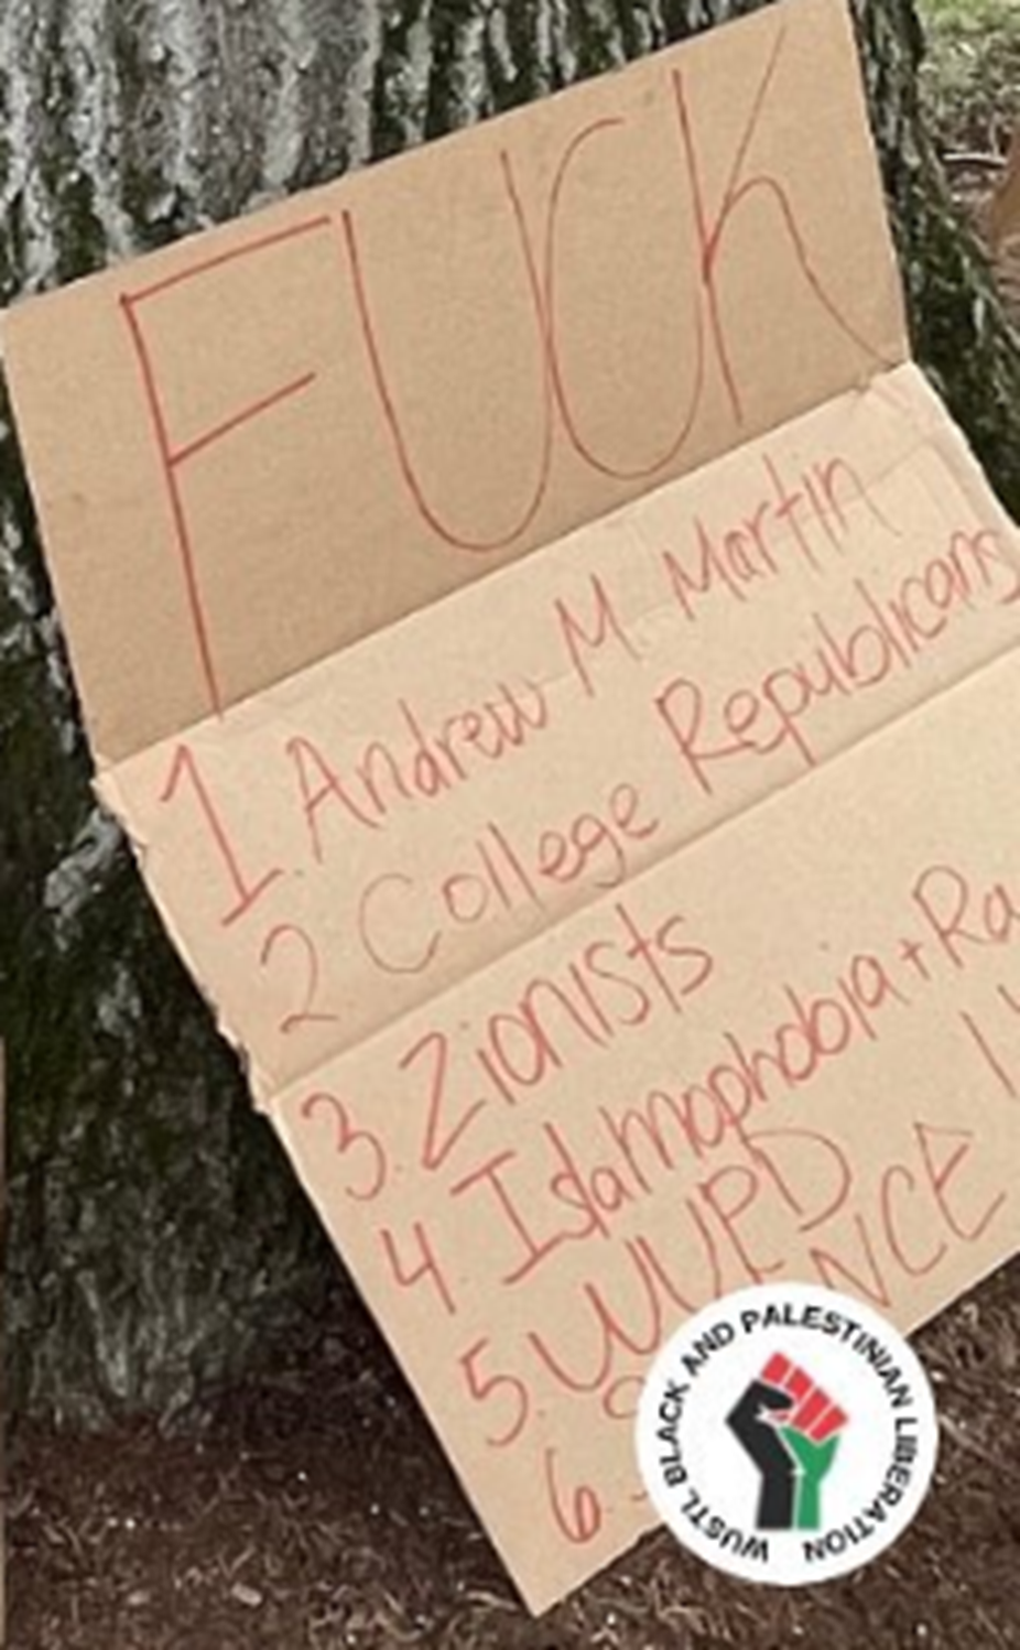 FUCK
1. Andrew M. Martin
2 College Republicans
3. Zionists
4. Islamophobia + Ra
5. WUPD
6. S NCE
WUSTL BLACK AND PALESTINIAN LIBERATION